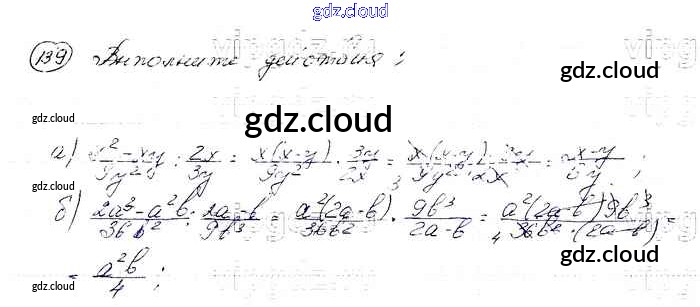 gdz.cloud
139 Выполните действия;
gdz.cloud
gdz.cloud
gdz.cloud
а) x² - xy / 9y² : 2x / 3y = x(x-y) / 9y² · 3y / 2x = x(x-y) · 3y / 9y² · 2x = x-y / 6y ;
б) 2a³ - a²b / 36b² : 2a-b / 9b³ = a²(2a-b) / 36b² · 9b³ / 2a-b = a²(2a-b) 9b³ / 36b² · (2a-b) =
= a²b / 4 ;
gdz.cloud
gdz.cloud
gdz.cloud